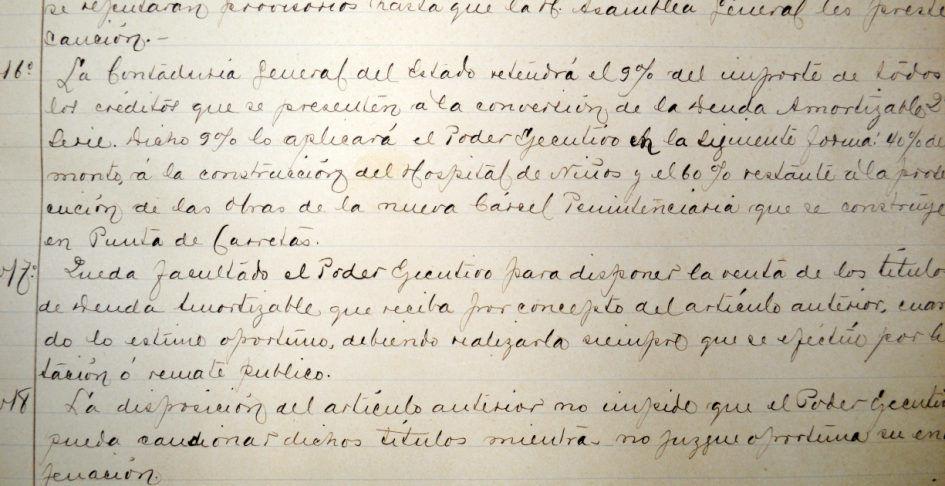 se reputarán provisorios hasta que la H. Asamblea General les preste
sanción.-
16º La Contaduria General del Estado retendrá el 9% del importe de todos
los créditos que se presenten á la conversión de la Deuda Amortizable 2
Serie. Dicho 9% lo aplicará el Poder Ejecutivo en la siguiente forma: 40% del
monto, á la construcción del Hospital de Niños y el 60% restante á la prose
cución de las obras de la nueva Carcel Penintenciaria que se construye
en Punta de Carretas.
17º Queda facultado el Poder Ejecutivo para disponer la venta de los titulos
de Deuda Amortizable que reciba por concepto del artículo anterior, cuan
do lo estime oportuno, debiendo realizarla siempre que se efectúe por li
tación ó remate publico.
18 La disposición del artículo anterior no impide que el Poder Ejecutiv
pueda caucionar dichos titulos mientras no juzgue oportuna su ena
jenación.